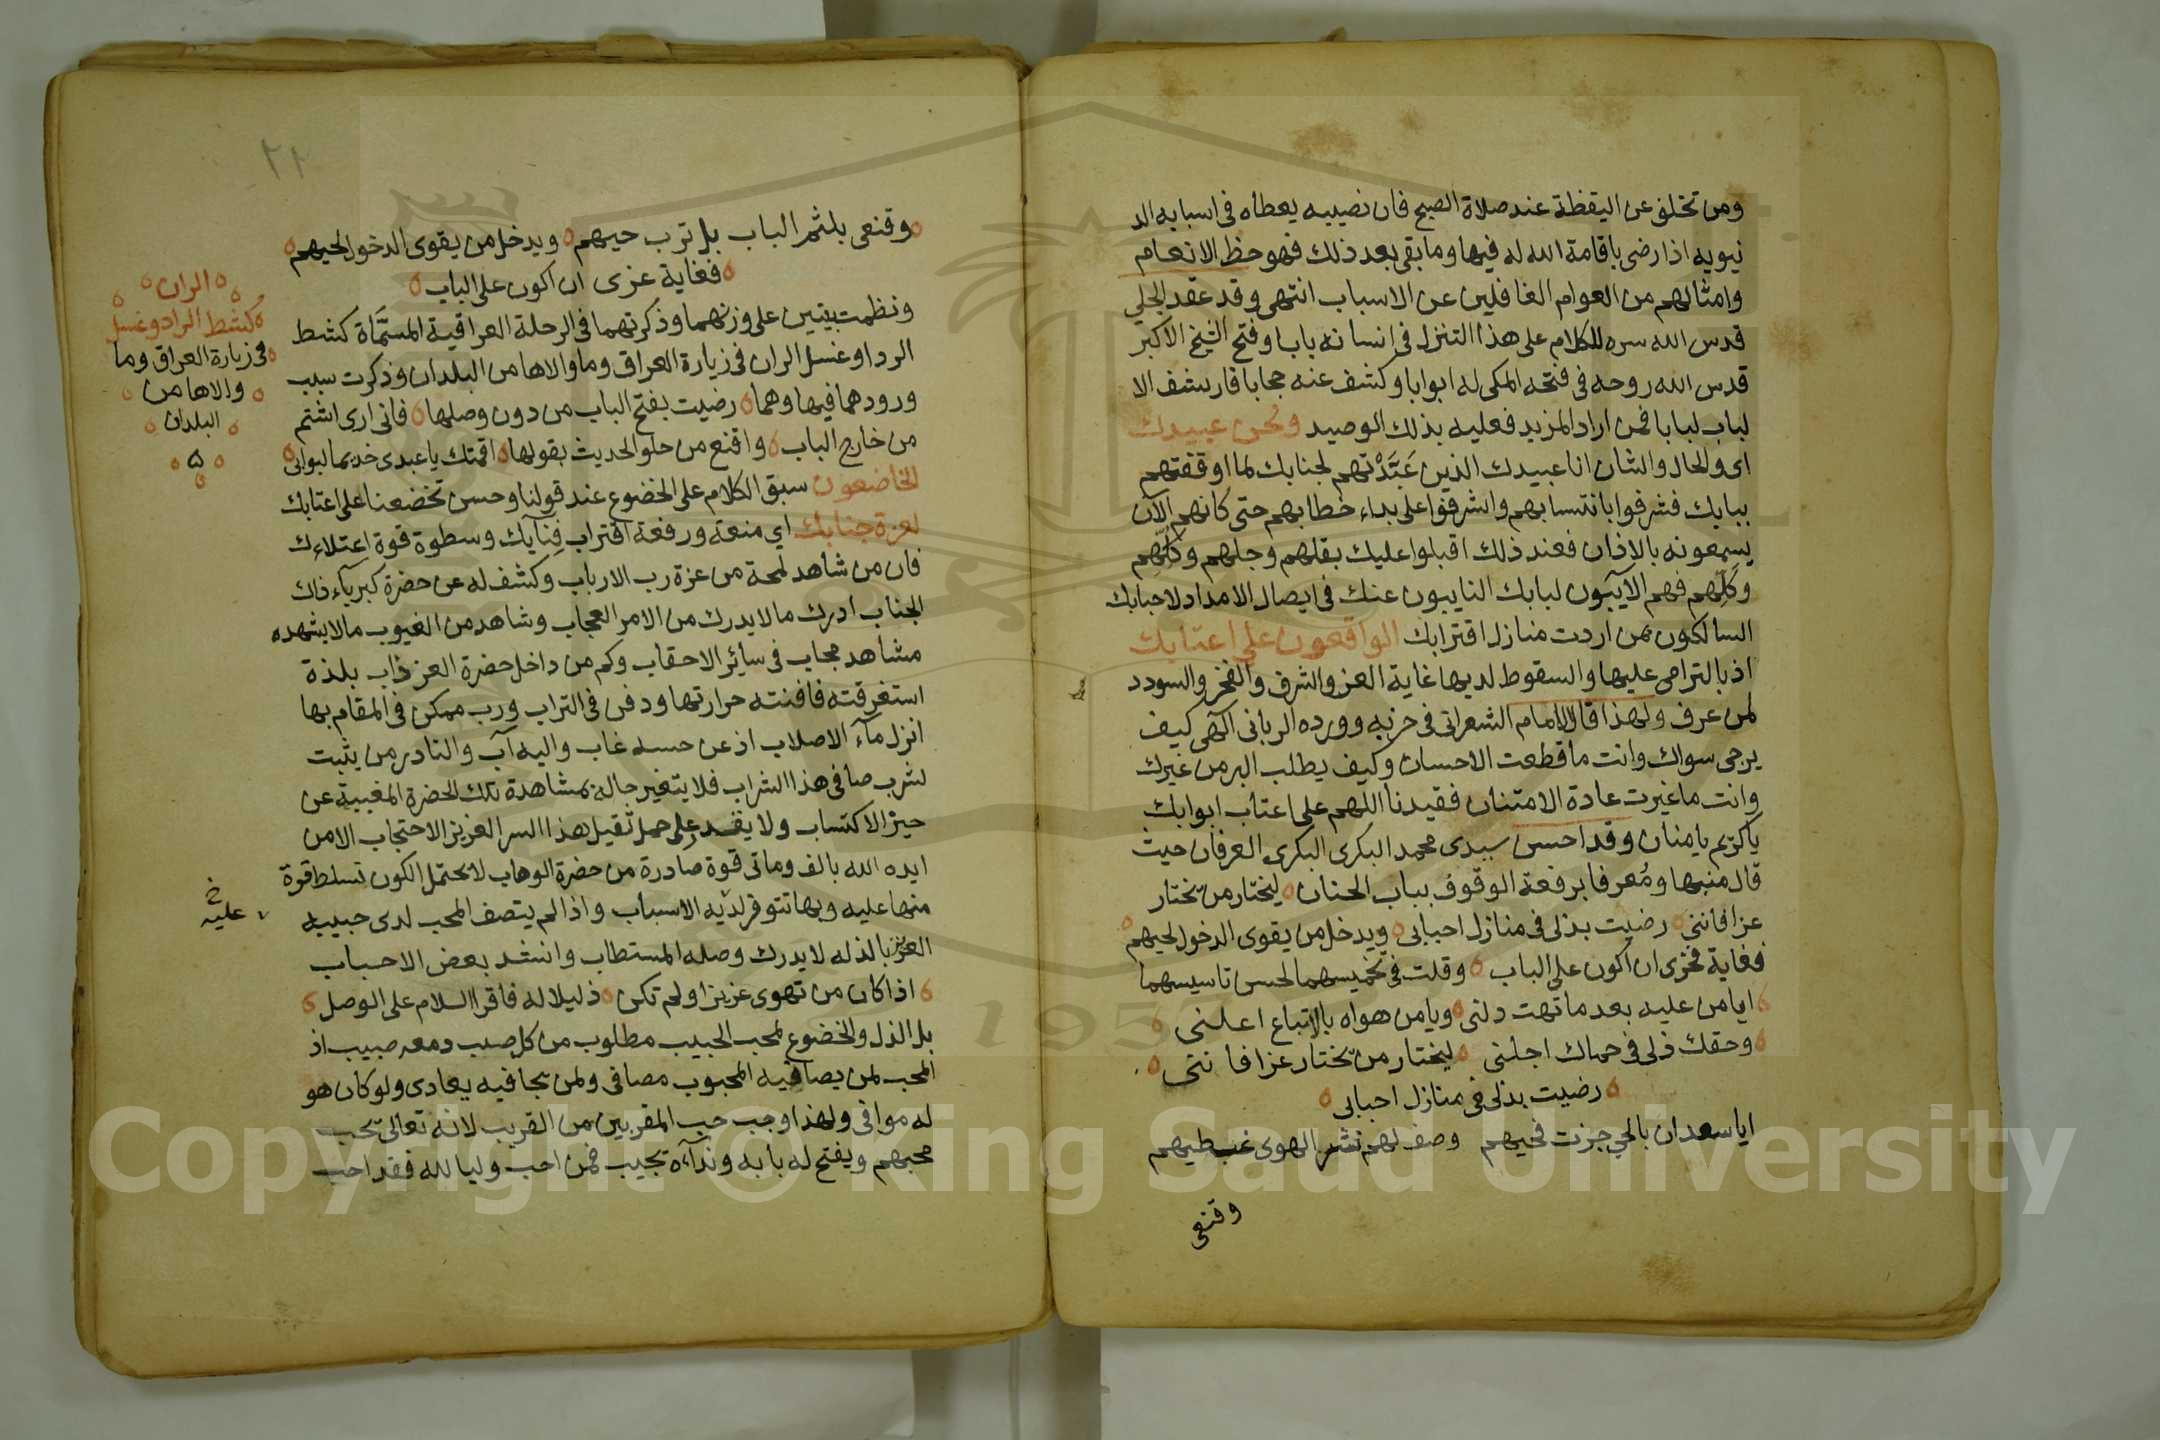 ومن تخلف عن اليقظة عند صلاة الصبح فان نصيبه يعطاه في اسبابه الد
نيويه اذا رضي باقامة الله له فيها وما بقي بعد ذلك فهو حظ الانعام
وامثالهم من العوام الغافلين عن الاسباب انتهى وقد عقد الجلي
قدس الله سره للكلام على هذا التنزل في انسانه بابا وفتح الشيخ الاكبر
قدس الله روحه في فتحه المكي له ابوابا وكشف عنه حجابا فارتشف الا
لباب لبابا فمن اراد المزيد فعليه بذلك الوصيد ونحن عبيدك
اى والحال والشان انا عبيدك الذين عَبَّدْتهم لجنابك لما اوقفتهم
ببابك فشرفوا بانتسابهم واشرفوا على بداء خطابهم حتى كانهم الآن
يسمعونه بالاذان فعند ذلك اقبلوا عليك بقلهم وجلهم وكُلِّهم
وكَلِّهم فهم الآيبون لبابك النايبون عنك في ايصال الامداد لاحبابك
السالكون ممن اردت منازل اقترابك الواقعون على اعتابك
اذ بالترامي عليها والسقوط لديها غاية العز والشرف والفخر والسودد
لمن عرف ولهذا قال الامام الشعراني في حزبه وورده الرباني الهي كيف
يرجى سواك وانت ما قطعت الاحسان وكيف يطلب البر من غيرك
وانت ما غيرت عادة الامتنان فقيدنا اللهم على اعتاب ابوابك
يا كريم يا منان وقد احسن سيدي محمد البكري البكري العرفان حيث
قال منبها ومُعرفا برفعة الوقوف بباب الحنان ليختار من يختار
عزا فانني رضيت بذلي في منازل احبابي ويدخل من يقوى الدخول لحيهم
فغاية فخري ان اكون على الباب وقلت في تخميسهما لحسن تاسيسهما
ايا من عليه بعد ما تهت دلني ويا من هواه بالاتباع اعلني
وحقك ذلي في حماك اجلني ليختار من يختار عزا فانني
رضيت بذلي في منازل احبابي
ايا سعد ان بالحي جزت فحيهم وصف لهم نشر الهوى غب طيهم
وقنعي
٢١
وقنعي بلثم الباب بل ترب حيهم ويدخل من يقوى الدخول لحيهم
فغاية عزي ان اكون على الباب
ونظمت بيتين على وزنهما وذكرتهما في الرحلة العراقية المسمَّاة كشط
الردا وغسل الران في زيارة العراق وما والاها من البلدان وذكرت سبب
ورودهما فيها وهما رضيت بفتح الباب من دون وصلها فاني ارى اشتم
من خارج الباب واقنع من حلو الحديث بقولها اقمتك يا عبدي خديما لبوابي
الخاضعون سبق الكلام على الخضوع عند قولنا وحسن تخضعنا على اعتابك
لعزة جنابك اي منعة ورفعة اقتراب فِنآيك وسطوة قوة اعتلاءك
فان من شاهد لمحة من عزة رب الارباب وكشف له عن حضرة كبريآء ذاك
الجناب ادرك ما لا يدرك من الامر العجاب وشاهد من الغيوب ما لا يشهده
مشاهد مجاب في ساير الاحقاب وكم من داخل حضرة العز ذاب بلذة
استغرقته فافنته حرارتها ودفن في التراب ورب ممكن في المقام بها
انزل مآء الاصلاب اذ عن حسه غاب واليه آب والنادر من يثبت
لشرب صافي هذا الشراب فلا يتغير حاله بمشاهدة تلك الحضرة المغيبة عن
حيز الاكتساب ولا يقدر على حمل ثقيل هذا السر العزيز الاحتجاب الا من
ايده الله بالف وماتي قوة صادرة من حضرة الوهاب لا يحتمل الكون تسلط قوة
منها عليه وبها تتوفر لديه الاسباب واذا لم يتصف المحب لدى حبيبه
العزيز بالذله لا يدرك وصله المستطاب وانشد بعض الاحباب
اذا كان من تهوى عزيزا ولم تكن ذليلا له فاقرا السلام على الوصل
بل الذل والخضوع لمحب الحبيب مطلوب من كل صب دمعه صبيب اذ
المحب لمن يصافيه المحبوب مصافي ولمن يجافيه يعادي ولو كان هو
له موافي ولهذا وجب حب المقربين من القريب لانه تعالى يحب
محبهم ويفتح له بابه وندآءه يجيب فمن احب وليا لله فقد احب
الران
كشط الردا وغسل
في زيارة العراق وما
والاها من
البلدان
خ
عليه
Copyright © King Saud University